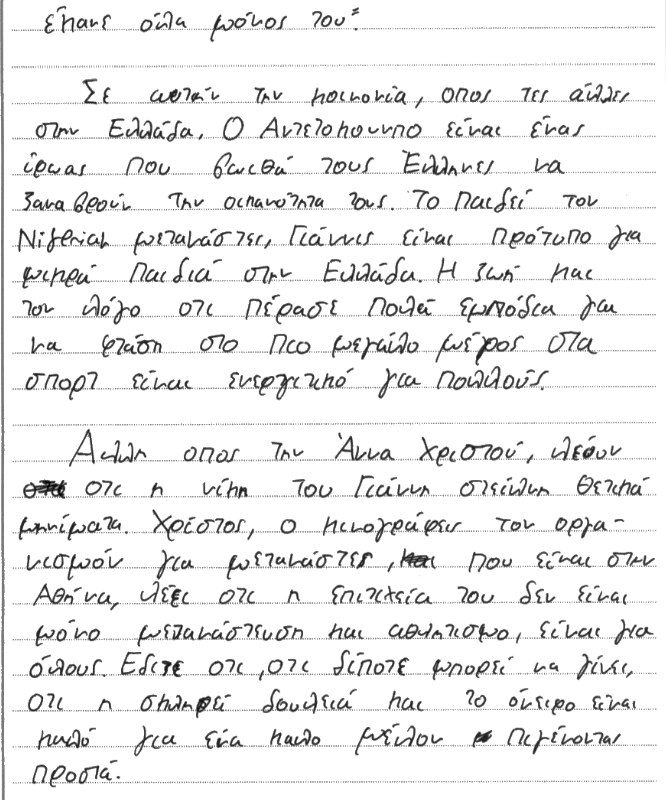 έκανε όλα μόνος του."
Σε αυτήν την κοινονία, οπος τες άλλες
στην Ελλάδα, Ο Αντετοκουνπο είναι ένας
ίρωας που βωιθά τους Έλληνες να
ξαναβρούν την ικανοτητα τους. Το παιδεί τον
Nigerian μετανάστες, Γιάννις είναι πρότυπο για
μικρά παιδιά στην Ελλάδα. Η ζωή κας
τον λόγο οτι πέρασε πολά εμπόδια για
να φτάση στο πιο μεγαίλο μέρος στα
σπορτ είναι ενεργιτικό για πολλούς.
Αλλη οπος την Άννα Χριστού, λέουν
οτι η νίκη του Γιάννη στείλνη θετικά
μηνίματα. Χρίστος, ο κινογράφις τον οργα-
νισμόν για μετανάστες, που είναι στην
Αθήνα, λέει οτι η επιτιχεία του δεν είναι
μόνο μετανάστευση και αθλητισμο, είναι για
όλους. Εδιτε οτι, οτι δίποτε μπορεί να γίνει,
οτι η σκληρεί δουλειά και το όνειρο είναι
καλό για ενα καλο μέλον πιγένοντας
προστά.